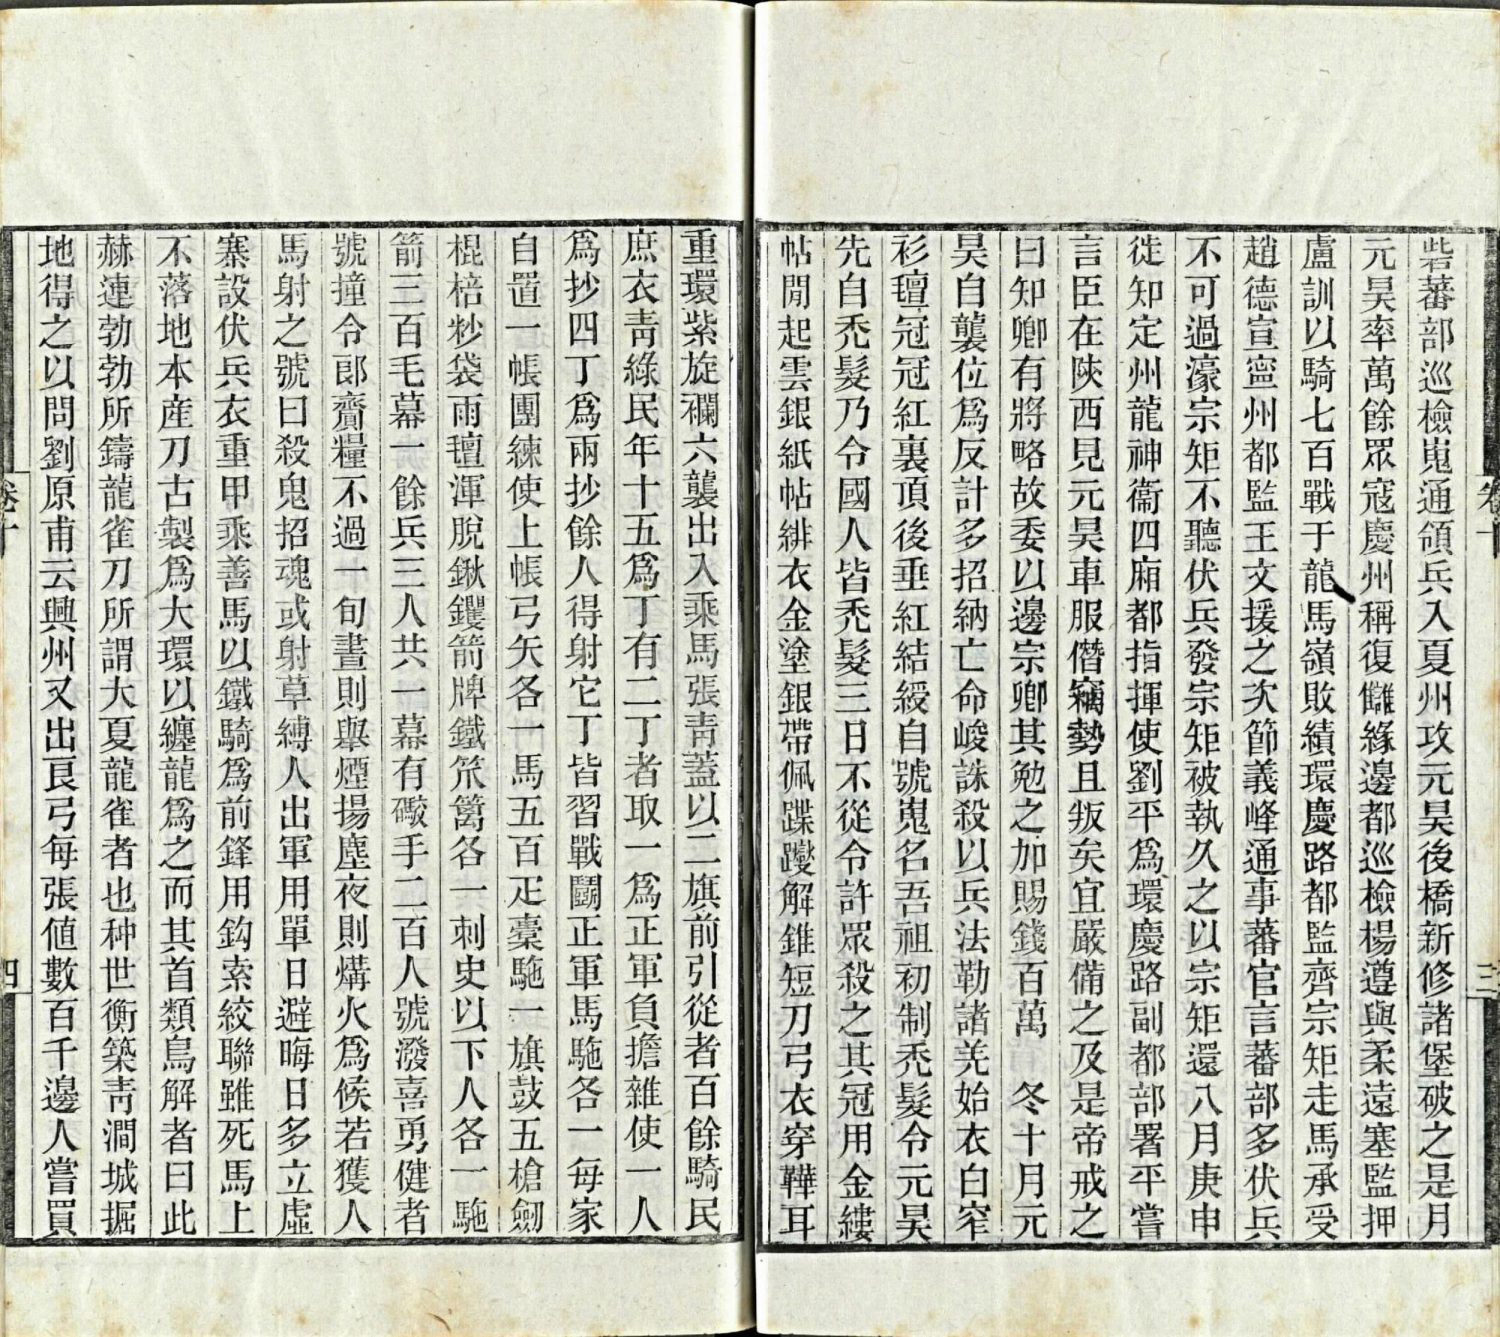 砦蕃部巡檢嵬通領兵入夏州攻元昊後橋新修諸堡破之是月
元昊率萬餘眾寇慶州稱復讎緣邊都巡檢楊遵與柔遠塞監押
盧訓以騎七百戰于龍馬嶺敗績環慶路都監齊宗矩走馬承受
趙德宣寧州都監王文援之次節義峰通事蕃官言蕃部多伏兵
不可過濠宗矩不聽伏兵發宗矩被執久之以宗矩還八月庚申
徙知定州龍神衞四廂都指揮使劉平為環慶路副都部署平嘗
言臣在陝西見元昊車服僭竊勢且叛矣宜嚴備之及是帝戒之
曰知卿有將略故委以邊宗卿其勉之加賜錢百萬　冬十月元
昊自襲位為反計多招納亡命峻誅殺以兵法勒諸羌始衣白窄
衫氊冠冠紅裏頂後垂紅結綬自號嵬名吾祖初制禿髮令元昊
先自禿髮乃令國人皆禿髮三日不從令許眾殺之其冠用金縷
帖間起雲銀紙帖緋衣金塗銀帶佩蹀躞解錐短刀弓衣穿鞾耳
重環紫旋襴六襲出入乘馬張青蓋以二旗前引從者百餘騎民
庶衣青綠民年十五為丁有二丁者取一為正軍負擔雜使一人
為抄四丁為兩抄餘人得射它丁皆習戰鬬正軍馬駞各一每家
自置一帳團練使上帳弓矢各一馬五百疋橐駞一旗鼓五槍劒
棍棓炒袋雨氊渾脫鍬钁箭牌鐵笊篱各一刺史以下人各一駞
箭三百毛幕一餘兵三人共一幕有礮手二百人號潑喜勇健者
號撞令郎齎糧不過一旬晝則舉煙揚塵夜則㷭火為候若獲人
馬射之號曰殺鬼招魂或射草縛人出軍用單日避晦日多立虛
寨設伏兵衣重甲乘善馬以鐵騎為前鋒用鈎索絞聯雖死馬上
不落地本産刀古製為大環以纏龍為之而其首類鳥解者曰此
赫連勃勃所鑄龍雀刀所謂大夏龍雀者也种世衡築青澗城掘
地得之以問劉原甫云興州又出良弓每張値數百千邊人嘗買
卷十
三
卷十
四